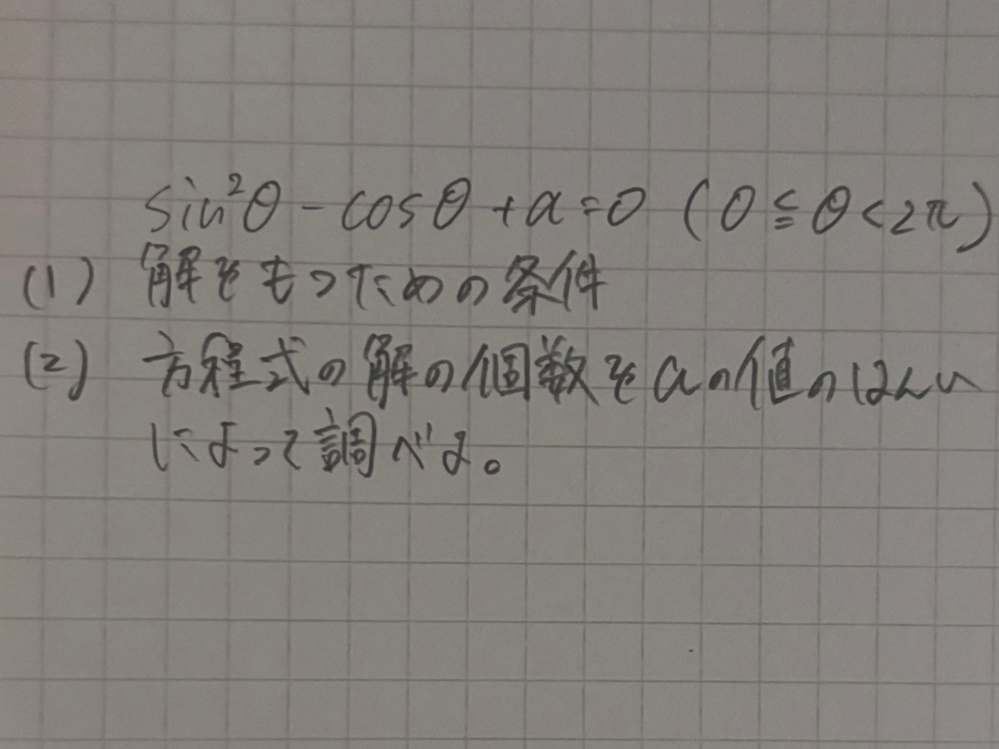 sin²θ - cosθ + a = 0 (0 ≦ θ < 2π)
(1) 解をもつための条件
(2) 方程式の解の個数をaの値のはんい
によって調べよ。